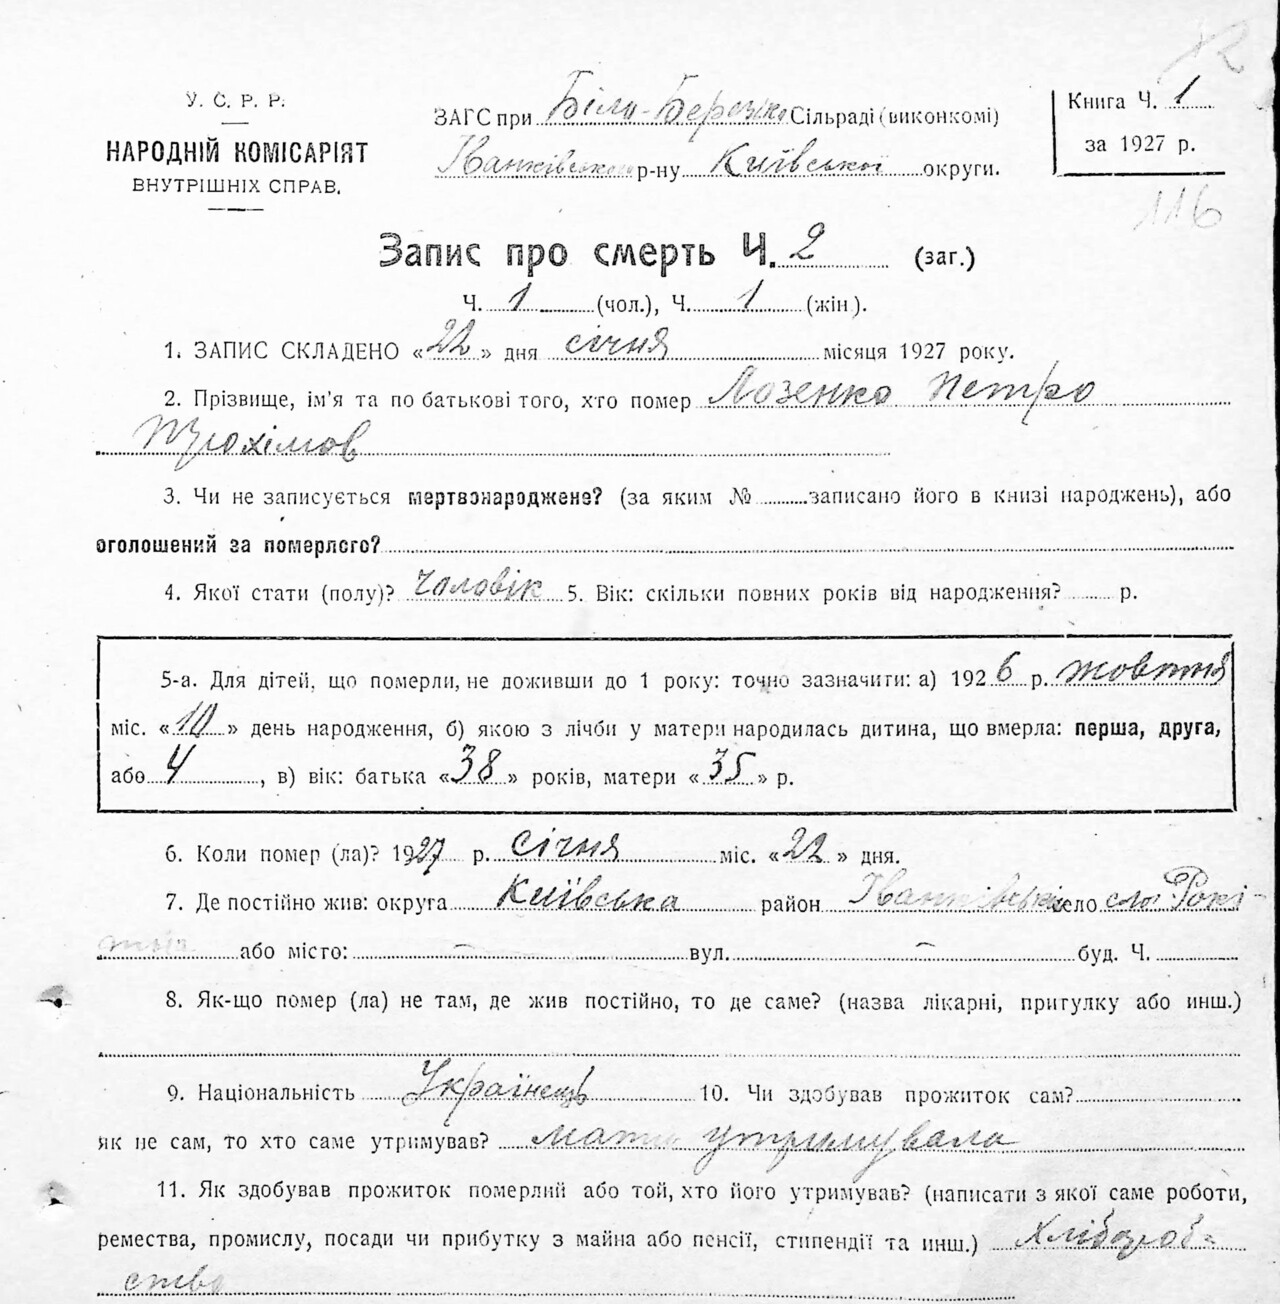 У. С. Р. Р.
НАРОДНІЙ КОМІСАРІЯТ
ВНУТРІШНІХ СПРАВ.
ЗАГС при Біло-Березко Сільраді (виконкомі)
Іванківського р-ну Київської округи.
Книга Ч. 1
за 1927 р.
116
Запис про смерть Ч. 2 (заг.)
Ч. 1 (чол.), Ч. 1 (жін).
1. ЗАПИС СКЛАДЕНО «22» дня січня місяця 1927 року.
2. Прізвище, ім'я та по батькові того, хто помер Лозенко Петро
3. Чи не записується мертвонароджене? (за яким № записано його в книзі народжень), або
оголошений за померлого?
4. Якої стати (полу)? Чоловік 5. Вік: скільки повних років від народження? р.
5-а. Для дітей, що померли, не доживши до 1 року: точно зазначити: а) 1926 р. жовтня
міс. «10» день народження, б) якою з лічби у матери народилась дитина, що вмерла: перша, друга,
або 4, в) вік: батька «38» років, матери «35» р.
6. Коли помер (ла)? 1927 р. січня міс. «22» дня.
7. Де постійно жив: округа Київська район Іванківськи село
або місто: — вул. — буд. Ч.
8. Як-що помер (ла) не там, де жив постійно, то де саме? (назва лікарні, притулку або инш.)
9. Національність Українець 10. Чи здобував прожиток сам?
як не сам, то хто саме утримував? мати утримувала
11. Як здобував прожиток померлий або той, хто його утримував? (написати з якої саме роботи,
ремества, промислу, посади чи прибутку з майна або пенсії, стипендії та инш.) Хлібороб-
ство